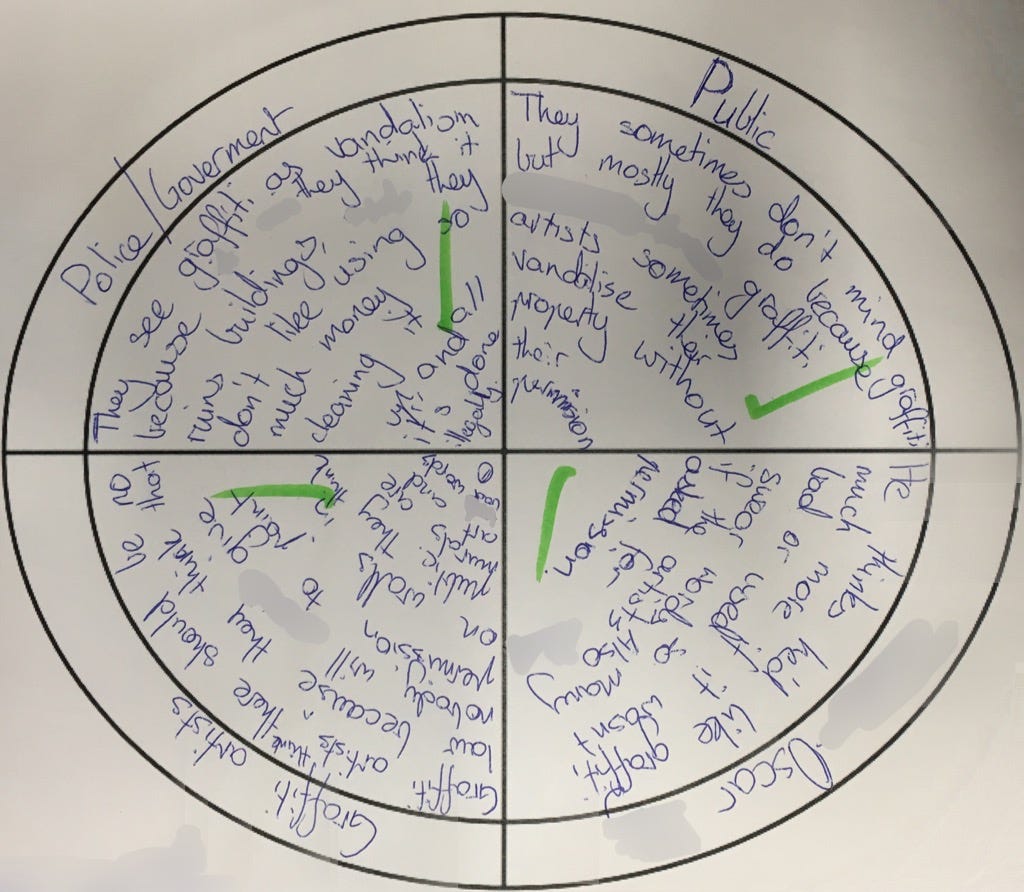 Police/Goverment
They see graffiti as vandalism
because they think it
ruins buildings, they
don't like using so
much money
cleaning it all
up and
it's done
illegaly.
Public
They sometimes don't mind graffiti
but mostly they do because
artists sometimes graffiti
vandalise their
property without
their
permission
Oscar
He thinks he'd like graffiti
much more it wasn't
bad or
swear words so many
if used. Also
asked the artists
for
permission.
Graffiti artists
Graffiti artists think there should be no
law because they think that
nobody will give
permission to paint
on walls in
public. They think
murals are
art and
words